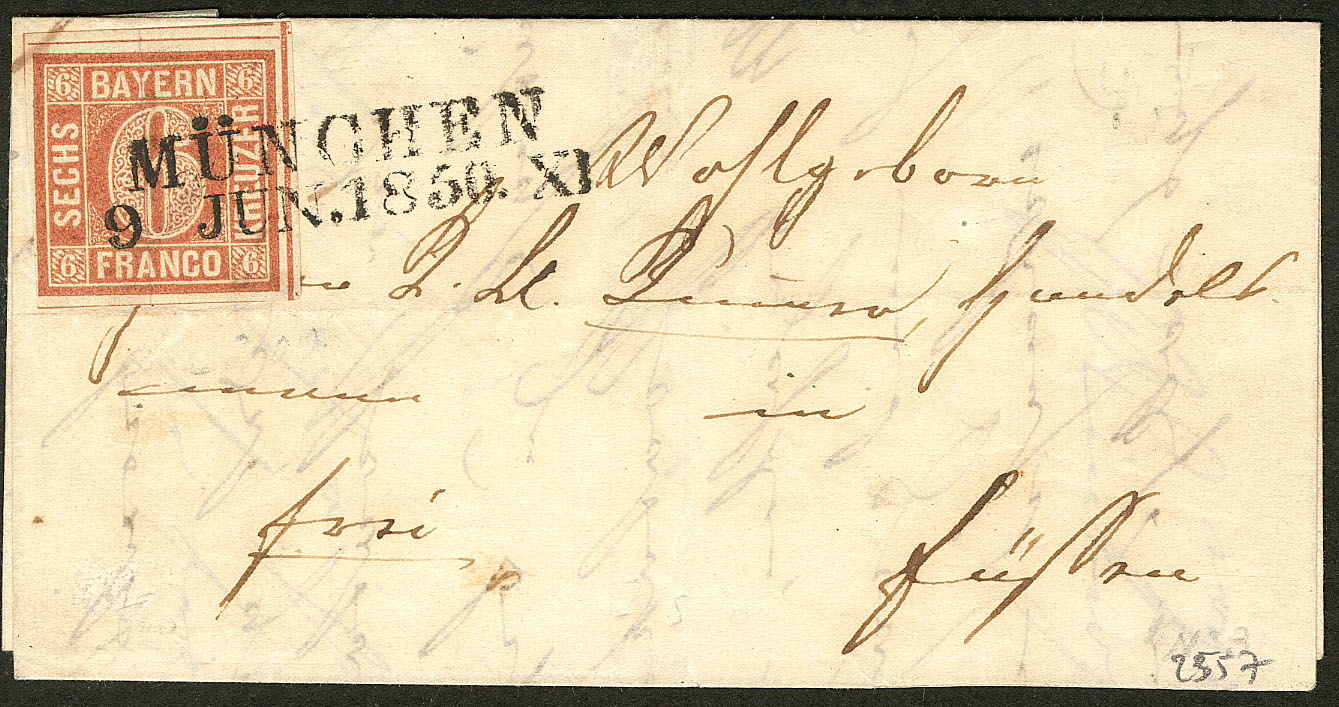 6 BAYERN 6
SECHS
6
KREUZER
6 FRANCO 6
MÜNCHEN
9 JUN. 1850. XI
Wohlgeborn
Handels-
mann in
frei
Füssen
2557